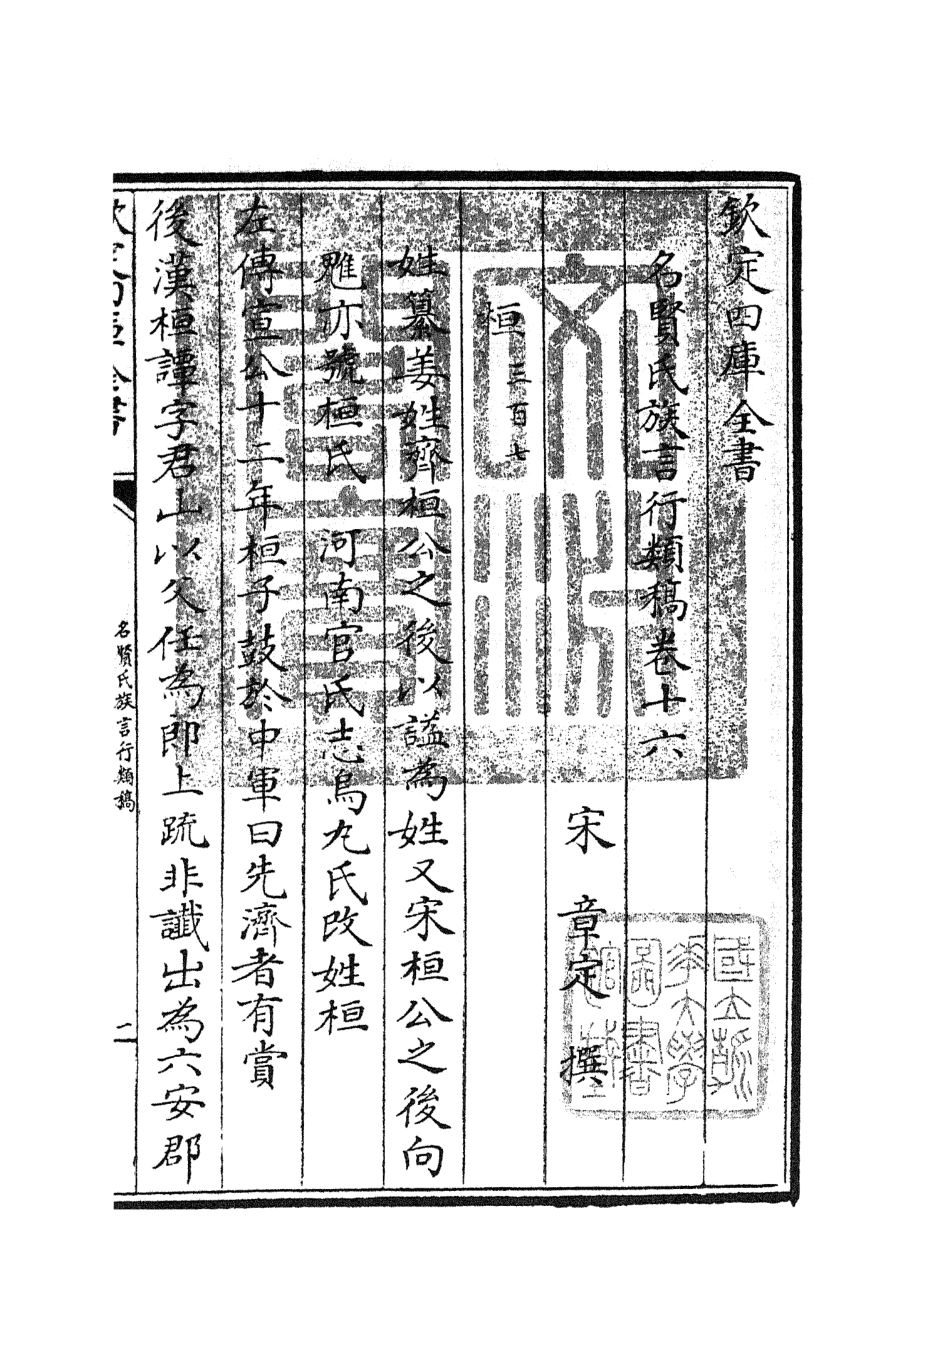 欽定四庫全書
名賢氏族言行類稿卷十六
宋 章定 撰
桓 三百七
姓纂姜姓齊桓公之後以諡為姓又宋桓公之後向
魋亦號桓氏 河南官氏志烏丸氏改姓桓
左傳宣公十二年桓子鼓於中軍曰先濟者有賞
後漢桓譚字君山以父任為郎上疏非讖出為六安郡
欽定四庫全書
名賢氏族言行類稿
二